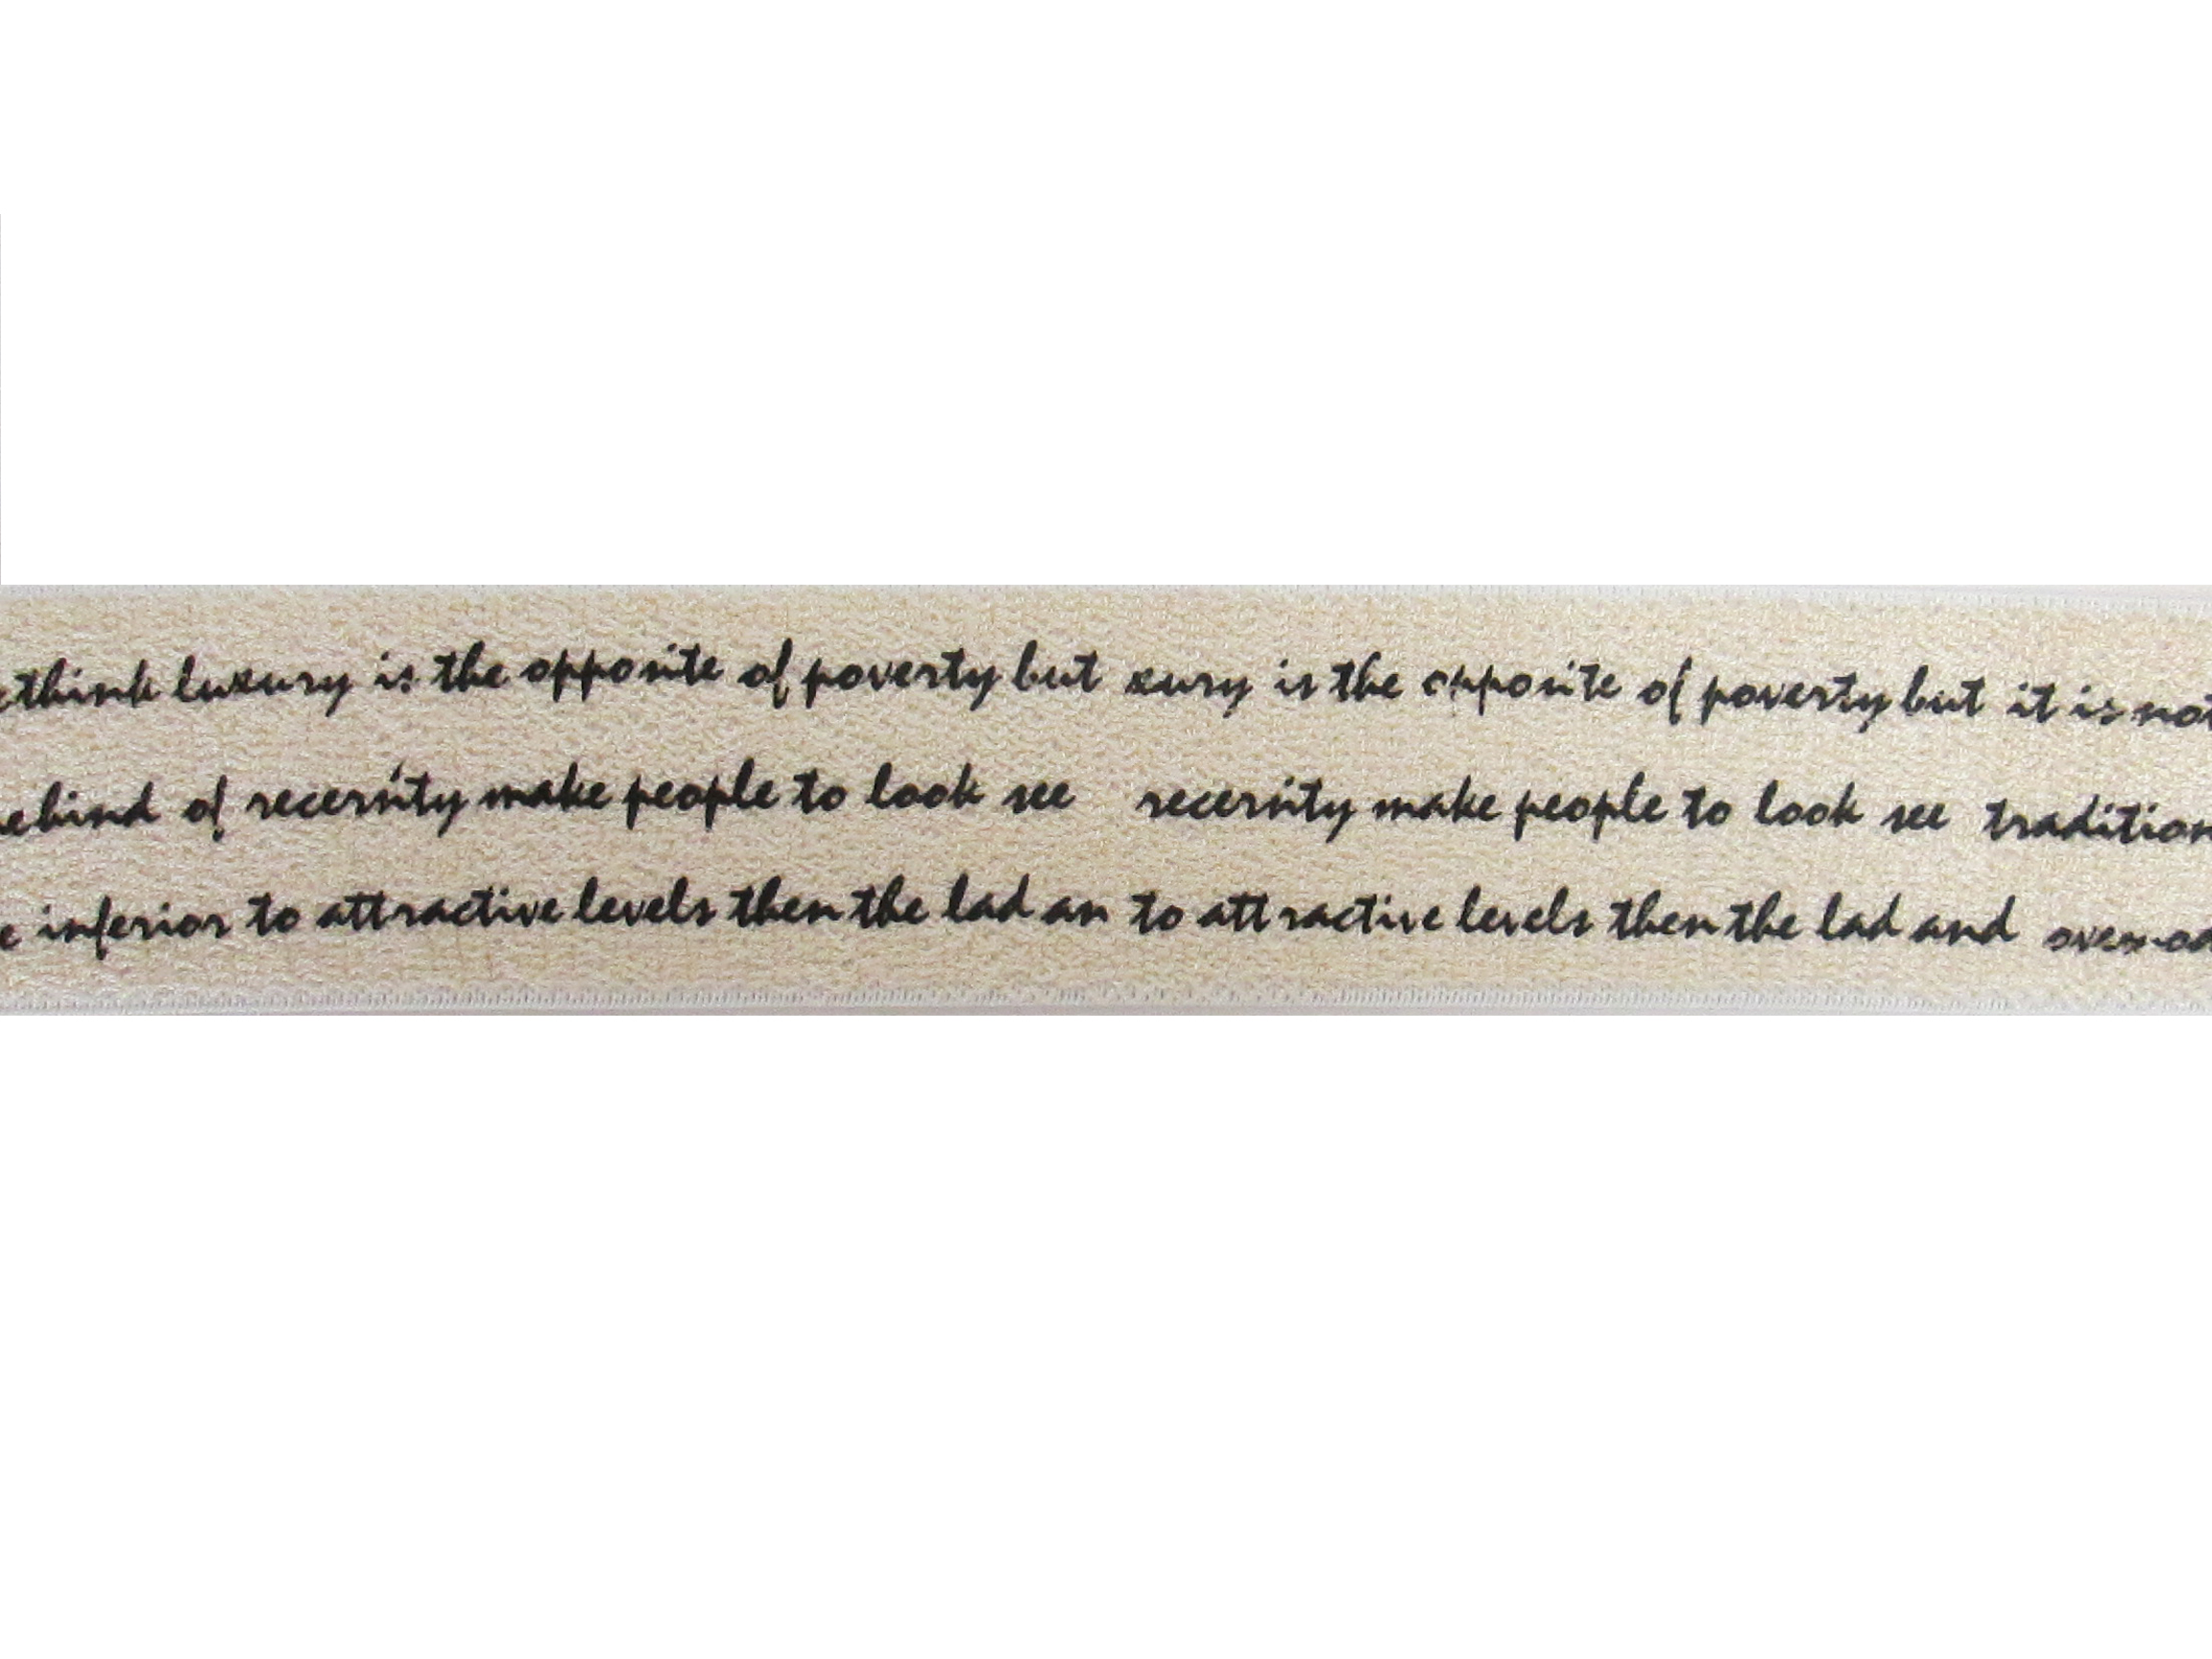 think luxury is the opposite of poverty but xury is the opposite of poverty but it is not
ehind of recersity make people to look see recersity make people to look see tradition
e inferior to attractive levels then the lad an to attractive levels then the lad and